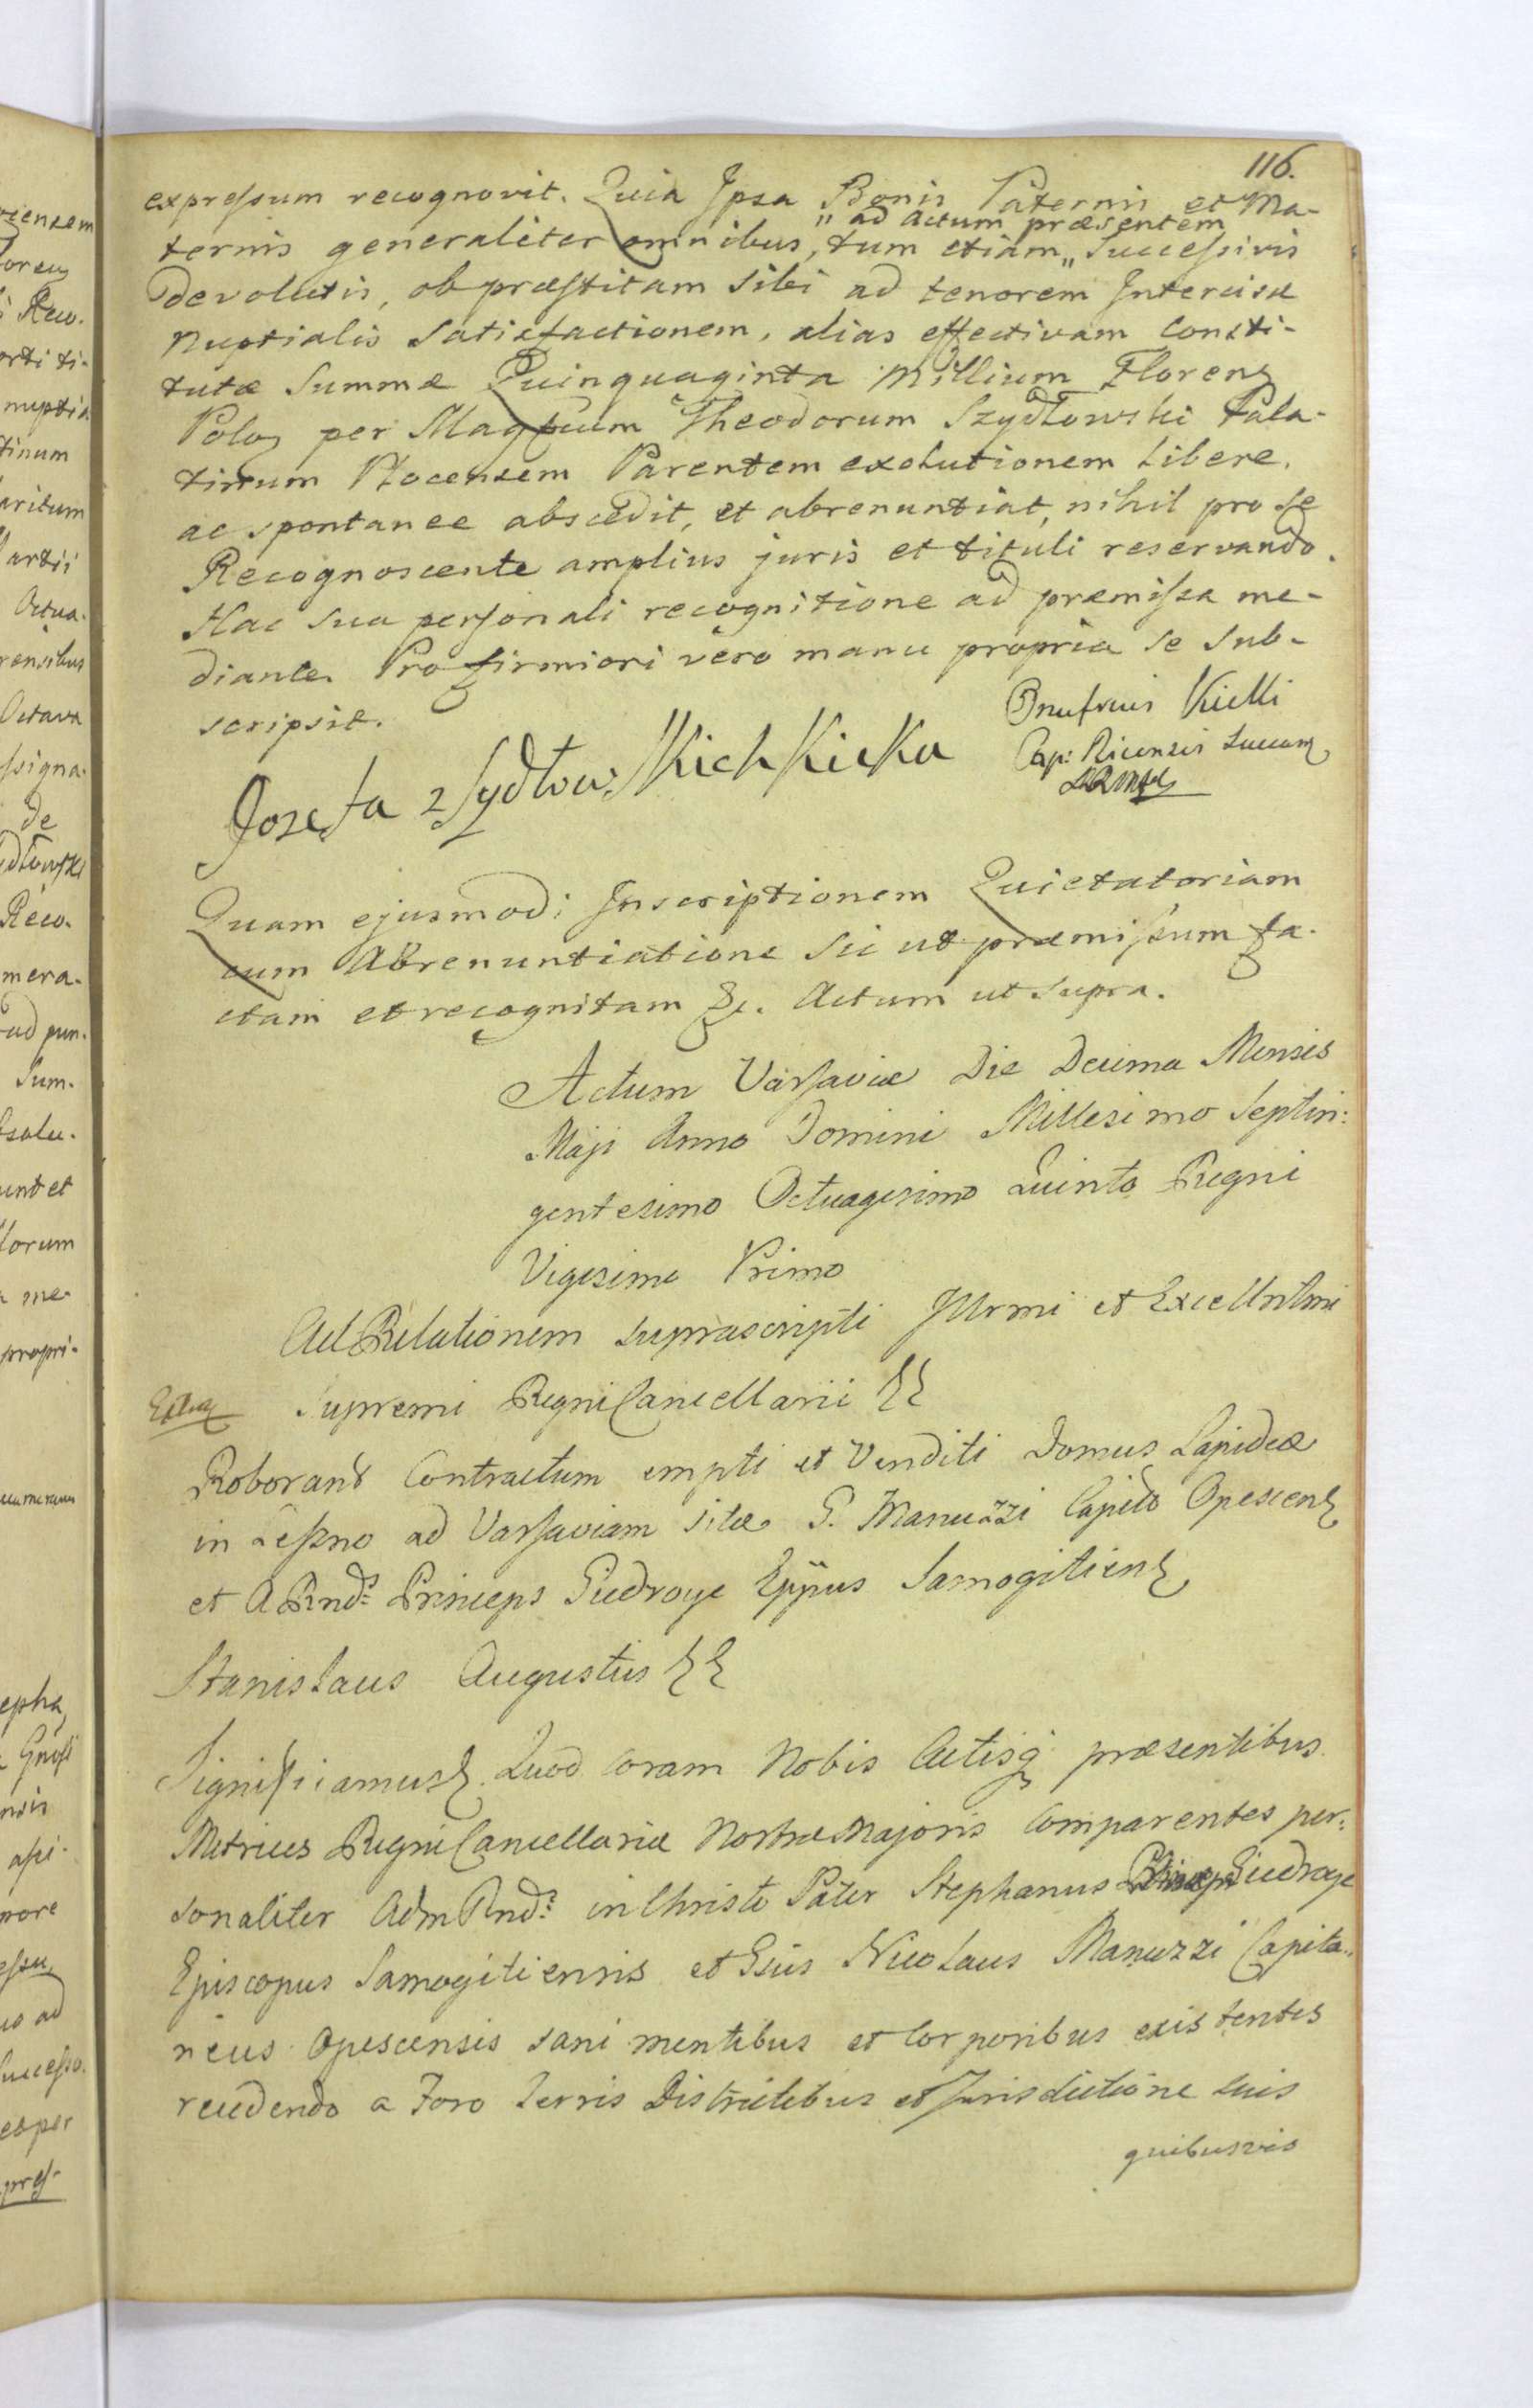 116.
expressum recognovit. Quia Ipsa Bonis Paternis et Ma-
" ad Actum præsentem
ternis generaliter omnibus, tum etiam " Successivis
devolutis, ob præstitam sibi ad tenorem Intercisæ
Nuptialis Satisfactionem, alias effectivam Consti-
tutæ Summæ Quinquaginta Millium Floren
Polo per Magficum Theodorum Szydłowski Pala-
tinum Plocensem Parentem exolutionem libere,
ac spontanee abscedit, et abrenuntiat, nihil pro se
Recognoscente amplius juris et tituli reservando.
Hac sua personali recognitione ad præmissa me-
diante. Pro firmiori vero manu propria se sub-
scripsit.
Onufrius Kicki
Cap: Ricensis Succam
Jozefa z Sydłowskich Kicka
Quam ejusmodi Inscriptionem Quietatoriam
cum Abrenuntiatione sic ut præmissum fa-
ctam et recognitam &c. Actum ut supra.
Actum Varsaviæ Die Decima Mensis
Maji Anno Domini Millesimo Septin:
gentesimo Octuagesimo Quinto Regni
Vigesimo Primo
Ad Relationem suprascripti Illrmi et Excellntmi
Supremi Regni Cancellarii &&
Roborans Contractum empti et Venditi Domus Lapideæ
in Leszno ad Varsaviam sitæ G. Manuzzi Capito Opescen
et A Rnds Princeps Giedroyc Eppus Samogitien
Stanislaus Augustus &&
Significamus& Quod coram Nobis Actisq præsentibus
Metrices Regni Cancellariæ Nostræ Majoris Comparentes per:
sonaliter Adm Rnds in Christo Pater Stephanus Princeps Giedroyc
Episcopus Samogitiensis et Gsus Nicolaus Manuzzi Capita:
neus Opescensis sani mentibus et Corporibus existentes
recedendo a Foro Terris Districtibus et Jurisdictione suis
quibusvis